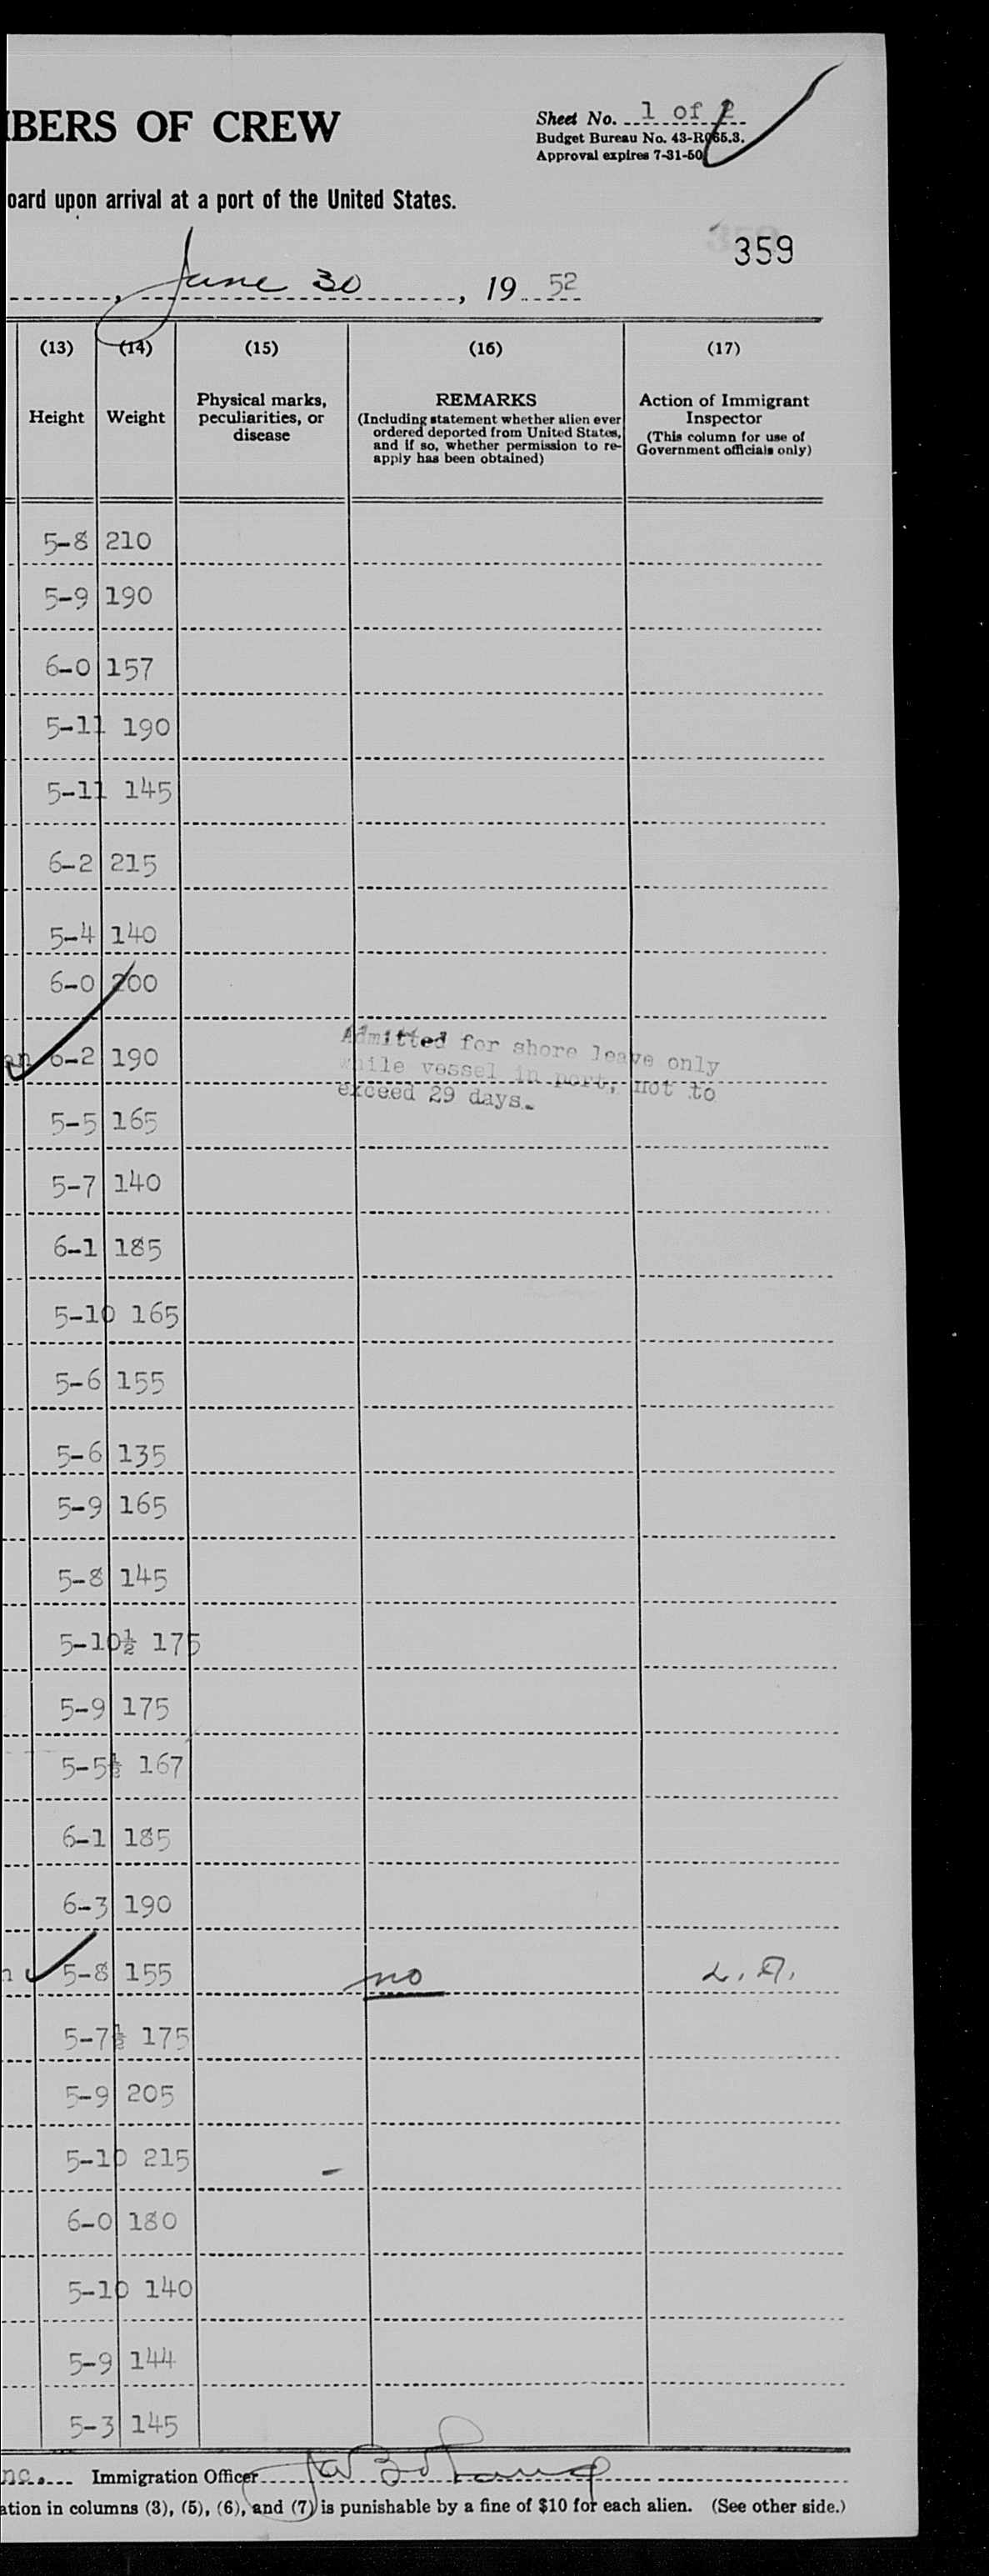 BERS OF CREW
Sheet No. 1 of 2
Budget Bureau No. 43-R065.3.
Approval expires 7-31-50
oard upon arrival at a port of the United States.
359
, June 30, 19 52
(13) (14) (15) (16) (17)
Height Weight Physical marks, peculiarities, or disease
REMARKS
(Including statement whether alien ever
ordered deported from United States,
and if so, whether permission to re-
apply has been obtained)
Action of Immigrant
Inspector
(This column for use of
Government officials only)
5-8 210
5-9 190
6-0 157
5-11 190
5-11 145
6-2 215
5-4 140
6-0 200
6-2 190
Admitted for shore leave only
while vessel in port, not to
exceed 29 days.
5-5 165
5-7 140
6-1 185
5-10 165
5-6 155
5-6 135
5-9 165
5-8 145
5-10½ 175
5-9 175
5-5½ 167
6-1 185
6-3 190
5-8 155 no
5-7½ 175
5-9 205
5-10 215
6-0 180
5-10 140
5-9 144
5-3 145
nc. Immigration Officer
ation in columns (3), (5), (6), and (7) is punishable by a fine of $10 for each alien. (See other side.)